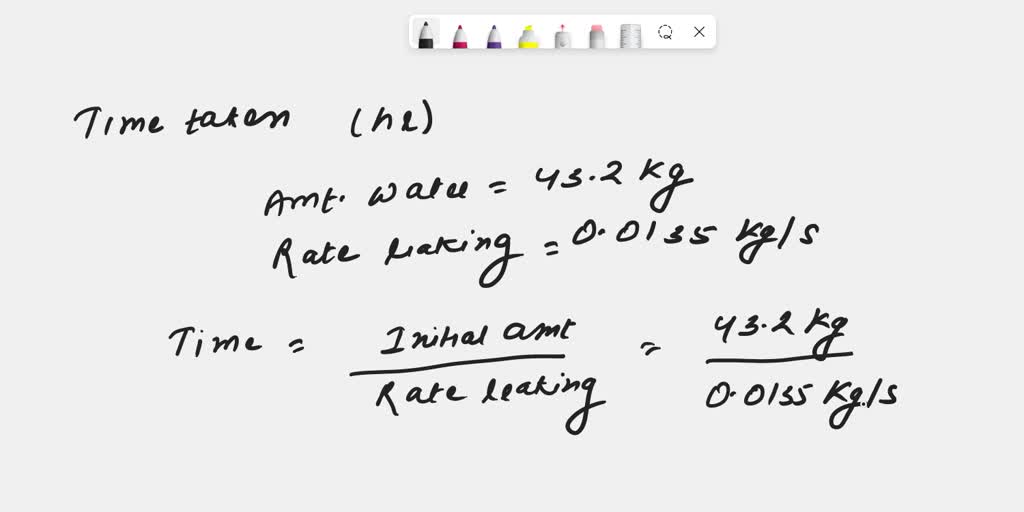 Time taken (hr)
Amt. Water = 43.2 Kg
Rate leaking = 0.0135 Kg/s
Time = Initial amt / Rate leaking = 43.2 Kg / 0.0135 Kg/s